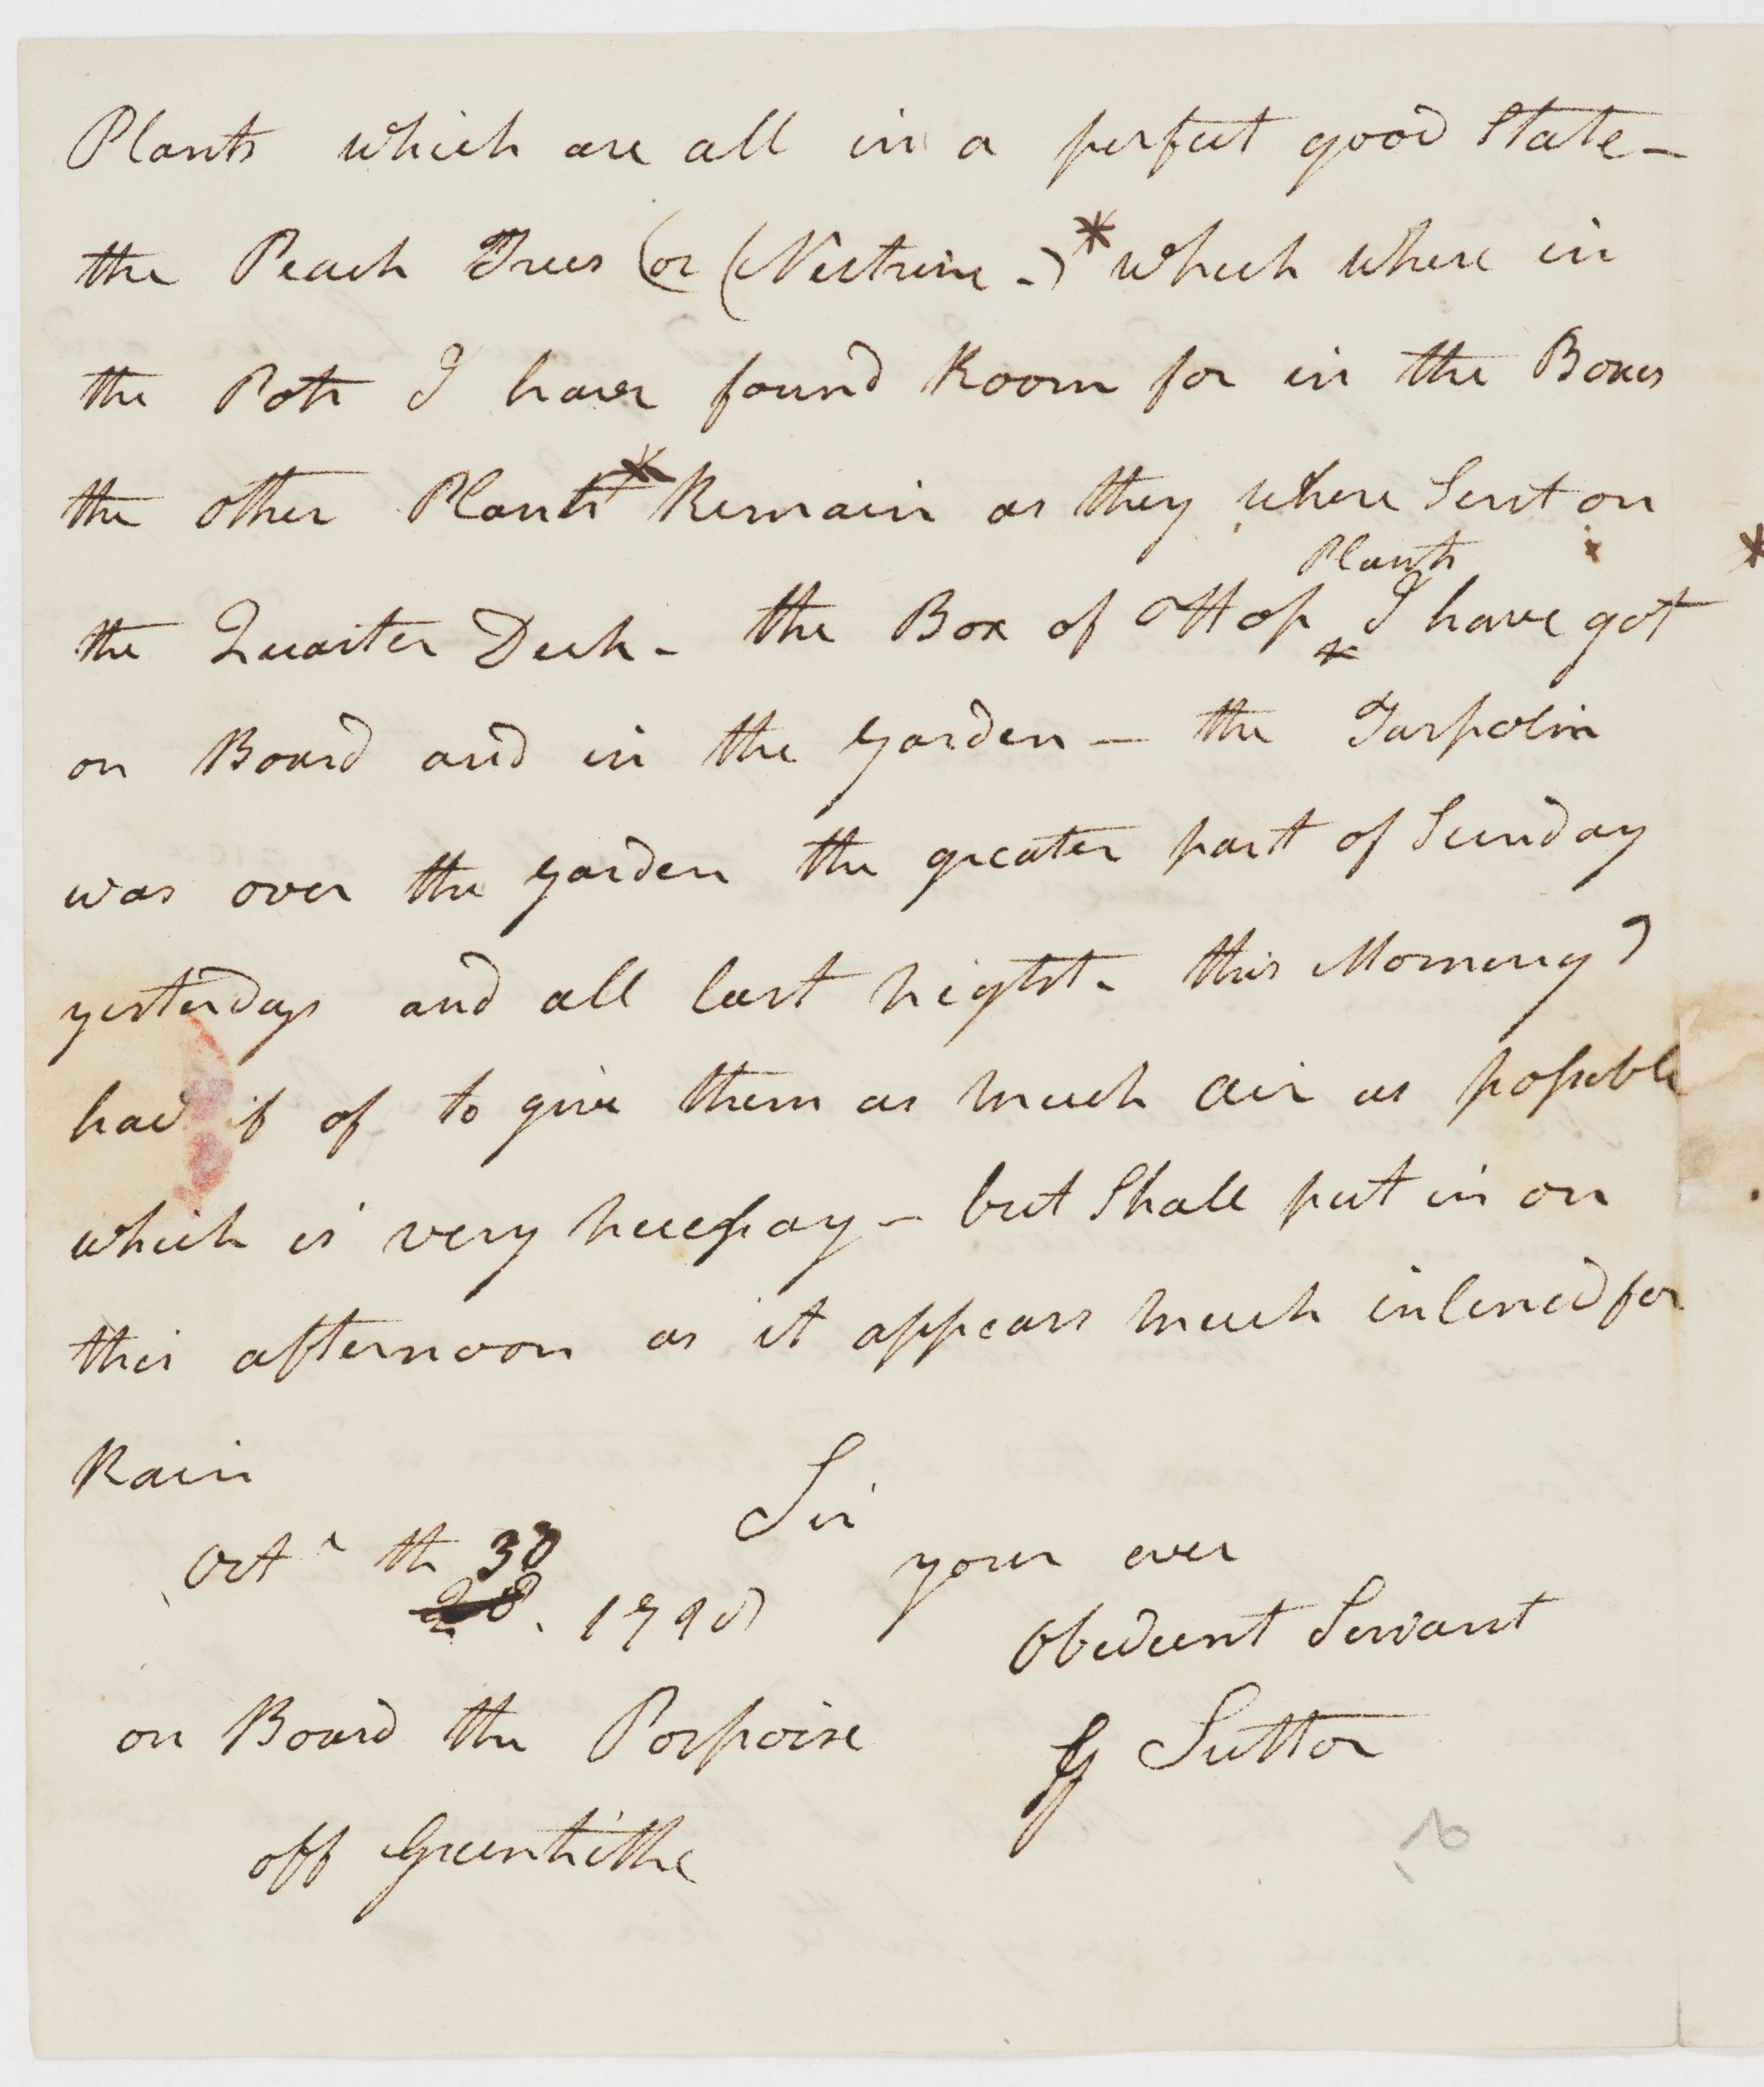 Plants which are all in a perfect good State -
the Peach Trees (or (Nectrine -)* which where in
the Pots I have found Room for in the Boxes
the other Plants* Remain as they where Sent on
Plants
the Quarter Deck - the Box of Hop I have got
on Board and in the Garden - the Tarpolin
was over the Garden the greater part of Sunday
yesterday and all last night - this Morning I
had it of to give them as much air as possible
which is very necessay - but Shall put in on
this afternoon as it appears much inlined for
Rain
Sir
Octr th 30
28. 1798
your ever
Obedient Servant
on Board the Porpoise
G Sutter
off Greenhithe